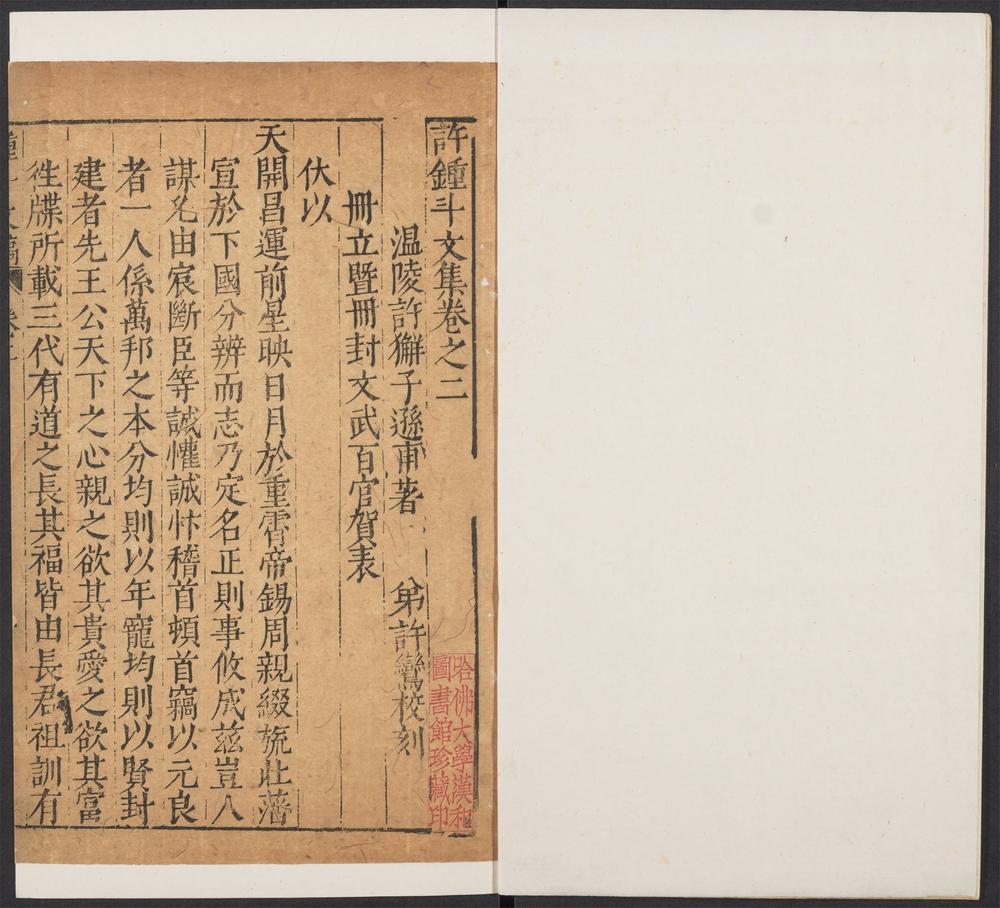 許鍾斗文集卷之二
温陵許獬子遜甫著 弟許鸞校刻
冊立暨冊封文武百官賀表
伏以
天開昌運前星映日月於重霄帝錫周親綴旒壯藩
宣於下國分辨而志乃定名正則事攸成兹豈人
謀允由宸斷臣等誠懽誠忭稽首頓首竊以元良
者一人係萬邦之本分均則以年寵均則以賢封
建者先王公天下之心親之欲其貴愛之欲其富
徃牒所載三代有道之長其福皆由長君祖訓有
哈佛大學漢和
圖書館珍藏印